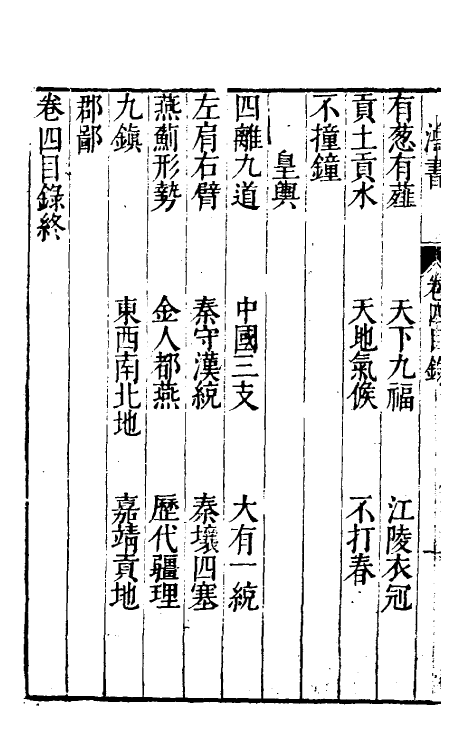 書
卷四目錄
有葱有薤　天下九福　江陵衣冠
貢土貢水　天地氣候　不打春
不撞鐘
皇輿
四離九道　中國三支　大有一統
左肩右臂　秦守漢統　秦壤四塞
燕薊形勢　金人都燕　歷代疆理
九鎮　東西南北地　嘉靖貢地
郡鄙
卷四目錄終